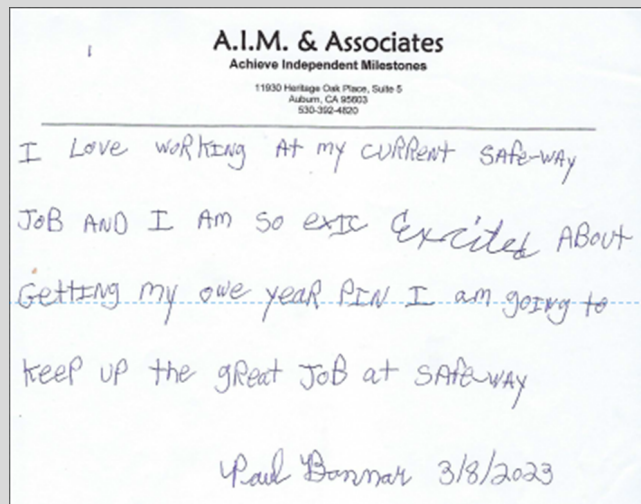 A.I.M. & Associates
Achieve Independent Milestones
11930 Heritage Oak Place, Suite 5
Auburn, CA 95603
530-392-4820
I Love working At my current SAfe-way
Job AND I Am so exIc Excited About
Getting my owe year PIN I am going to
keep up the great Job at SAfe-way
Paul Bannar 3/8/2023